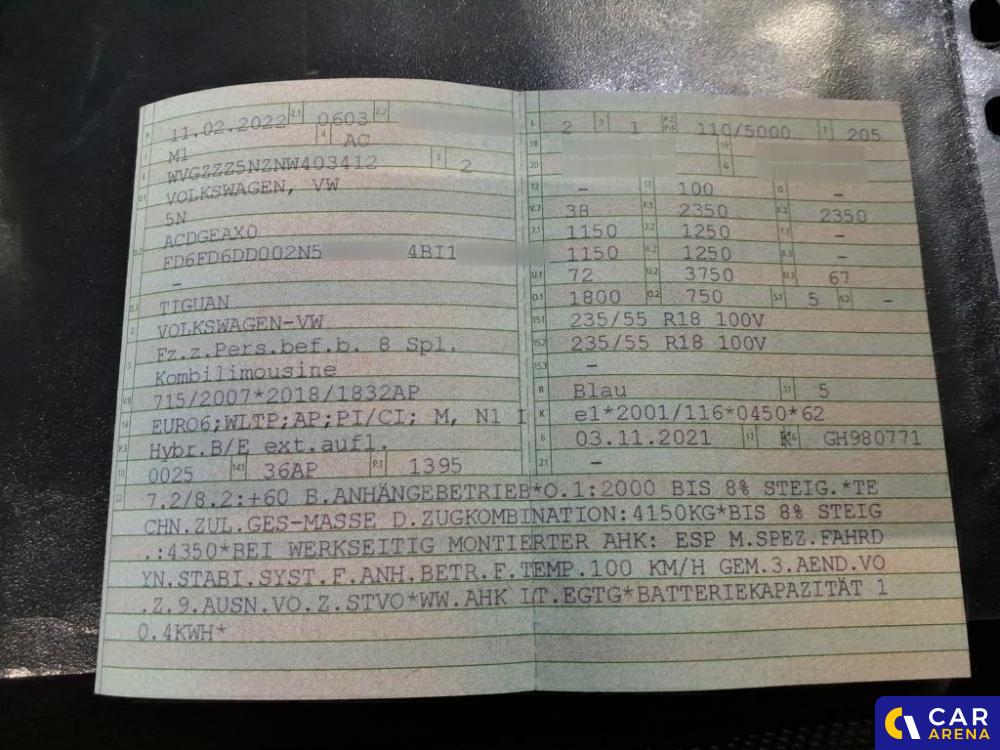 B 11.02.2022 2.1 0603 2.2
J M1 4 AC
E WVGZZZ5NZNW403412 3 2
D.1 VOLKSWAGEN, VW
5N
D.2 ACDGEAX0
FD6FD6DD002N5 4BI1
–
D.3 TIGUAN
2 VOLKSWAGEN-VW
Fz.z.Pers.bef.b. 8 Spl.
5 Kombilimousine
V.9 715/2007*2018/1832AP
14 EURO6;WLTP;AP;PI/CI; M, N1 I
P.3 Hybr.B/E ext.aufl.
10 0025 14.1 36AP P.1 1395
L 2 9 1 P.2 P.4 110/5000 T 205
18 19
20 G
12 – 13 100 Q –
V.7 38 F.1 2350 F.2 2350
7.1 1150 7.2 1250 7.3 –
8.1 1150 8.2 1250 8.3 –
U.1 72 U.2 3750 U.3 67
O.1 1800 O.2 750 S.1 5 S.2 –
15.1 235/55 R18 100V
15.2 235/55 R18 100V
15.3 –
R Blau 11 5
K e1*2001/116*0450*62
6 03.11.2021 17 K 16 GH980771
21 –
22 7.2/8.2:+60 B.ANHÄNGEBETRIEB*O.1:2000 BIS 8% STEIG.*TE
CHN.ZUL.GES-MASSE D.ZUGKOMBINATION:4150KG*BIS 8% STEIG
.:4350*BEI WERKSEITIG MONTIERTER AHK: ESP M.SPEZ.FAHRD
YN.STABI.SYST.F.ANH.BETR.F.TEMP.100 KM/H GEM.3.AEND.VO
.Z.9.AUSN.VO.Z.STVO*WW.AHK LT.EGTG*BATTERIEKAPAZITÄT 1
0.4KWH*
CAR
ARENA